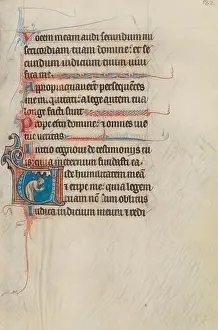 Vocem meam audi secundum mi
sericordiam tuam domine: et se
cundum iudicium tuum vivi
fica me.
Appropinquaverunt persequentes
me iniquitati: a lege autem tua
longe facti sunt
Prope es tu domine: et omnes vie
tue veritas
Initio cognovi de testimoniis
tuis: quia in eternum fundasti ea
Vide humilitatem meam
et eripe me: quia legem
tuam non sum oblitus
Iudica iudicium meum et redi